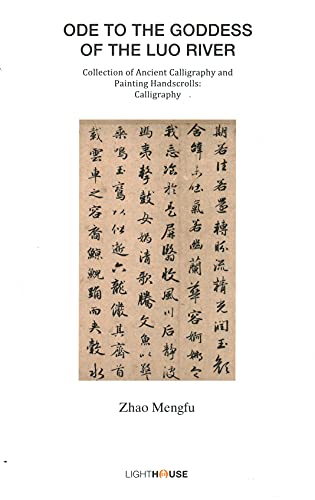 ODE TO THE GODDESS
OF THE LUO RIVER
Collection of Ancient Calligraphy and
Painting Handscrolls:
Calligraphy
期若往若還轉眄流精光潤玉顏
含辭未吐氣若幽蘭華容婀娜令
我忘飡於是屏翳收風川后靜波
馮夷擊鼓女媧清歌騰文魚以警
乘鳴玉鸞以偕逝六龍儼其齊首
載雲車之容裔鯨鯢踴而夾轂水
Zhao Mengfu
LIGHTHOUSE